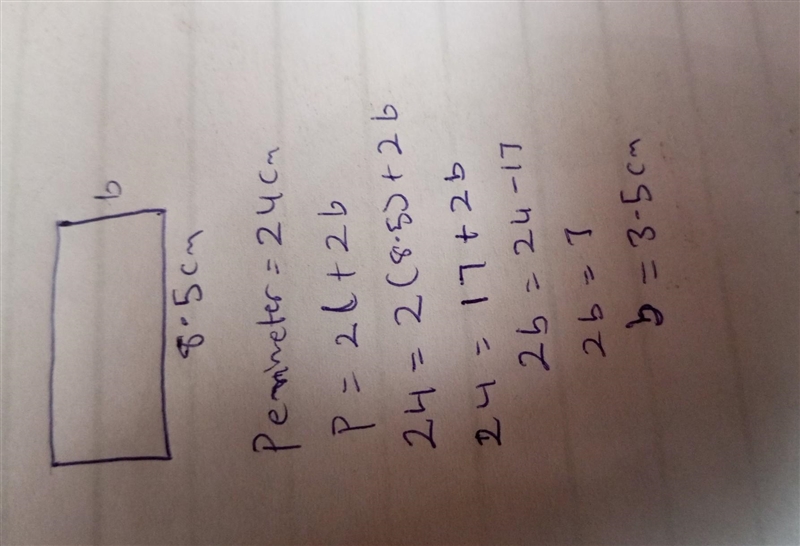 b
8.5cm
Perimeter = 24cm
P = 2l + 2b
24 = 2(8.5) + 2b
24 = 17 + 2b
2b = 24 - 17
2b = 7
b = 3.5cm